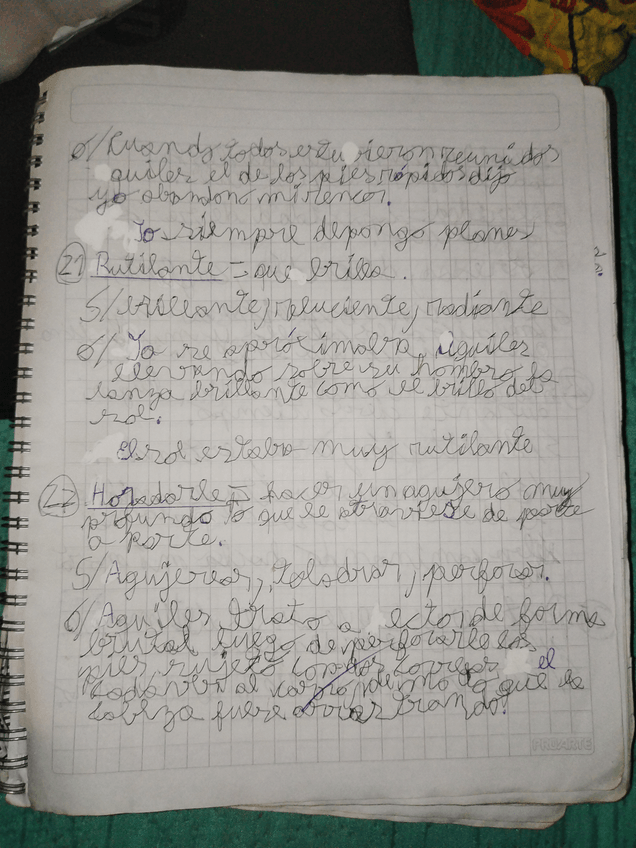 6/ Cuando todos estuvieron reunidos
aquiles el de los pies rápidos dijo
yo abandono mi rencor.
Yo siempre depongo planes
21 Rutilante = que brilla.
S/ brillante, reluciente, radiante
6/ Ya se apróximaba, aquiles
elevando sobre su hombro la
lanza brillante como el brillo del
sol.
El sol estaba muy rutilante
22 Horadarle = hacer un agujero muy
profundo lo que le atraviese de parte
a parte.
S/ Agujerear, taladrar, perforar.
6/ Aquiles trato a ector de forma
brutal luego de perforarle los
pies sujeto con correas el
cadaver al carro, de modo que la
cabeza fuere arrastrando.
2
2.
PROARTE